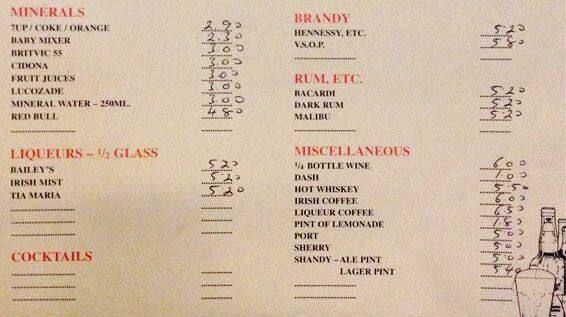 MINERALS
7UP / COKE / ORANGE 2.90
BABY MIXER 2.30
BRITVIC 55 3.00
CIDONA 3.00
FRUIT JUICES 3.00
LUCOZADE 3.00
MINERAL WATER – 250ML. 3.00
RED BULL 4.80
LIQUEURS – ½ GLASS
BAILEY'S 5.20
IRISH MIST 5.20
TIA MARIA 5.20
COCKTAILS
BRANDY
HENNESSY, ETC. 5.20
V.S.O.P. 5.80
RUM, ETC.
BACARDI 5.20
DARK RUM 5.20
MALIBU 5.20
MISCELLANEOUS
¼ BOTTLE WINE 6.00
DASH 1.00
HOT WHISKEY 5.50
IRISH COFFEE 6.00
LIQUEUR COFFEE
PINT OF LEMONADE
PORT 5.00
SHERRY 5.00
SHANDY – ALE PINT 5.00
LAGER PINT 5.40